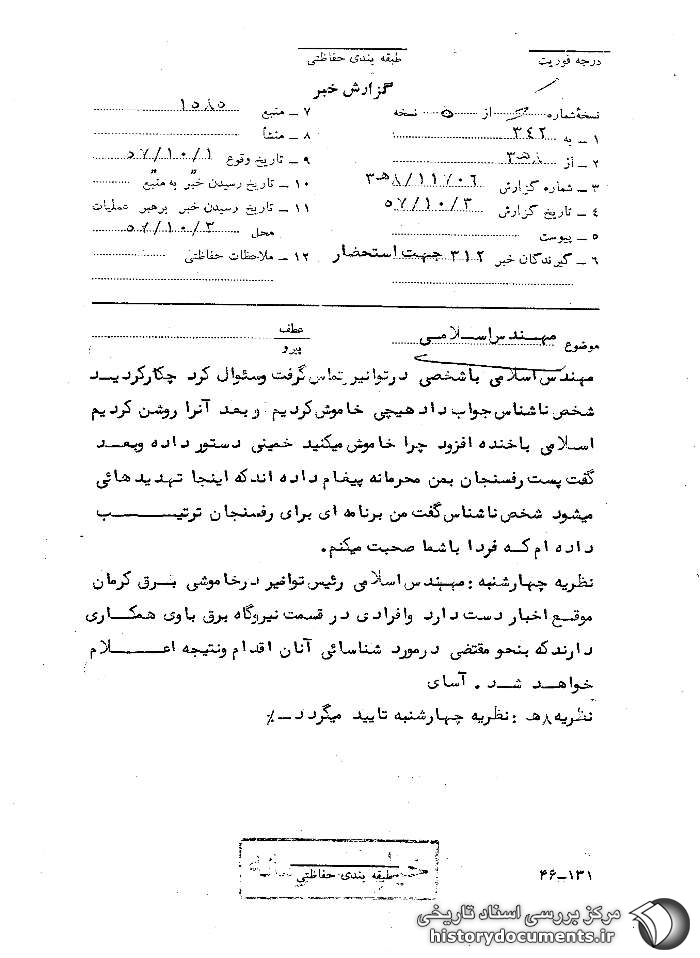 درجه فوریت
طبقه بندی حفاظتی
گزارش خبر
نسخهٔ شماره از ۵ نسخه
۱ ـ به ۳۴۲
۲ ـ از ۸هـ۳
۳ ـ شماره گزارش ۳هـ۸/۱۱۷۰۶
۴ ـ تاریخ گزارش ۵۷/۱۰/۳
۵ ـ پیوست
۶ ـ گیرندگان خبر ۳۱۲ جهت استحضار
۷ ـ منبع ۱۵۸۵
۸ ـ منشأ
۹ ـ تاریخ وقوع ۵۷/۱۰/۱
۱۰ ـ تاریخ رسیدن خبر به منبع
۱۱ ـ تاریخ رسیدن خبر برهبر عملیات
محل ۵۷/۱۰/۳
۱۲ ـ ملاحظات حفاظتی
موضوع مهندس اسلامی
عطف
پیرو
مهندس اسلامی باشخصی درتوانیر تماس گرفت وسئوال کرد چکارکردیـد
شخص ناشناس جواب داد هیچی خاموش کردیم و بعد آنرا روشن کردیم
اسلامی باخنده افزود چرا خاموش میکنید خمینی دستور داده وبعـد
گفت پست رفسنجان بمن محرمانه پیغام داده اندکه اینجا تهدیدهائی
میشود شخص ناشناس گفت من برنامه ای برای رفسنجان ترتیـــب
داده ام کـه فردا باشما صحبت میکنم.
نظریه چهارشنبه : مهندس اسلامی رئیس توانیر درخاموشی بـرق کرمان
موقـع اخبار دست دارد وافرادی در قسمت نیروگاه برق باوی همکـاری
دارندکه بنحو مقتضی درمورد شناسائی آنان اقدام ونتیجه اعـــلام
خواهـد شـد . آسای
نظریه ۸هـ : نظریه چهارشنبه تایید میگردد ــ٪
طبقه بندی حفاظتی
۴۶ــ۱۳۱
مرکز بررسی اسناد تاریخی
historydocuments.ir